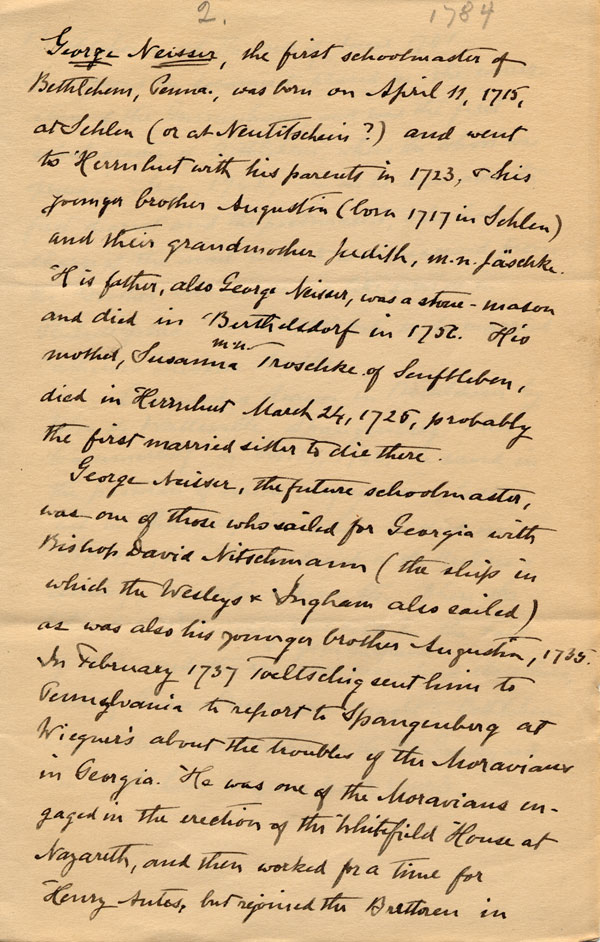 2. 1784
George Neisser, the first schoolmaster of
Bethlehem, Penna., was born on April 11, 1715,
at Sehlen (or at Neutitschein?) and went
to Herrnhut with his parents in 1723, & his
younger brother Augustin (born 1717 in Sehlen)
and their grandmother Judith, m.n. Jäschke.
His father, also George Neisser, was a stone-mason
and died in Berthelsdorf in 1756. His
mother, Susanna m.n. Troschke of Senftleben,
died in Herrnhut March 24, 1726, probably
the first married sister to die there.
George Neisser, the future schoolmaster,
was one of those who sailed for Georgia with
Bishop David Nitschmann (the ship in
which the Wesleys & Ingham also sailed)
as was also his younger brother Augustin, 1735.
In February 1737 Toeltschig sent him to
Pennsylvania to report to Spangenberg at
Wiegner's about the troubles of the Moravians
in Georgia. He was one of the Moravians en-
gaged in the erection of the Whitefield House at
Nazareth, and then worked for a time for
Henry Antes, but rejoined the Brethren in